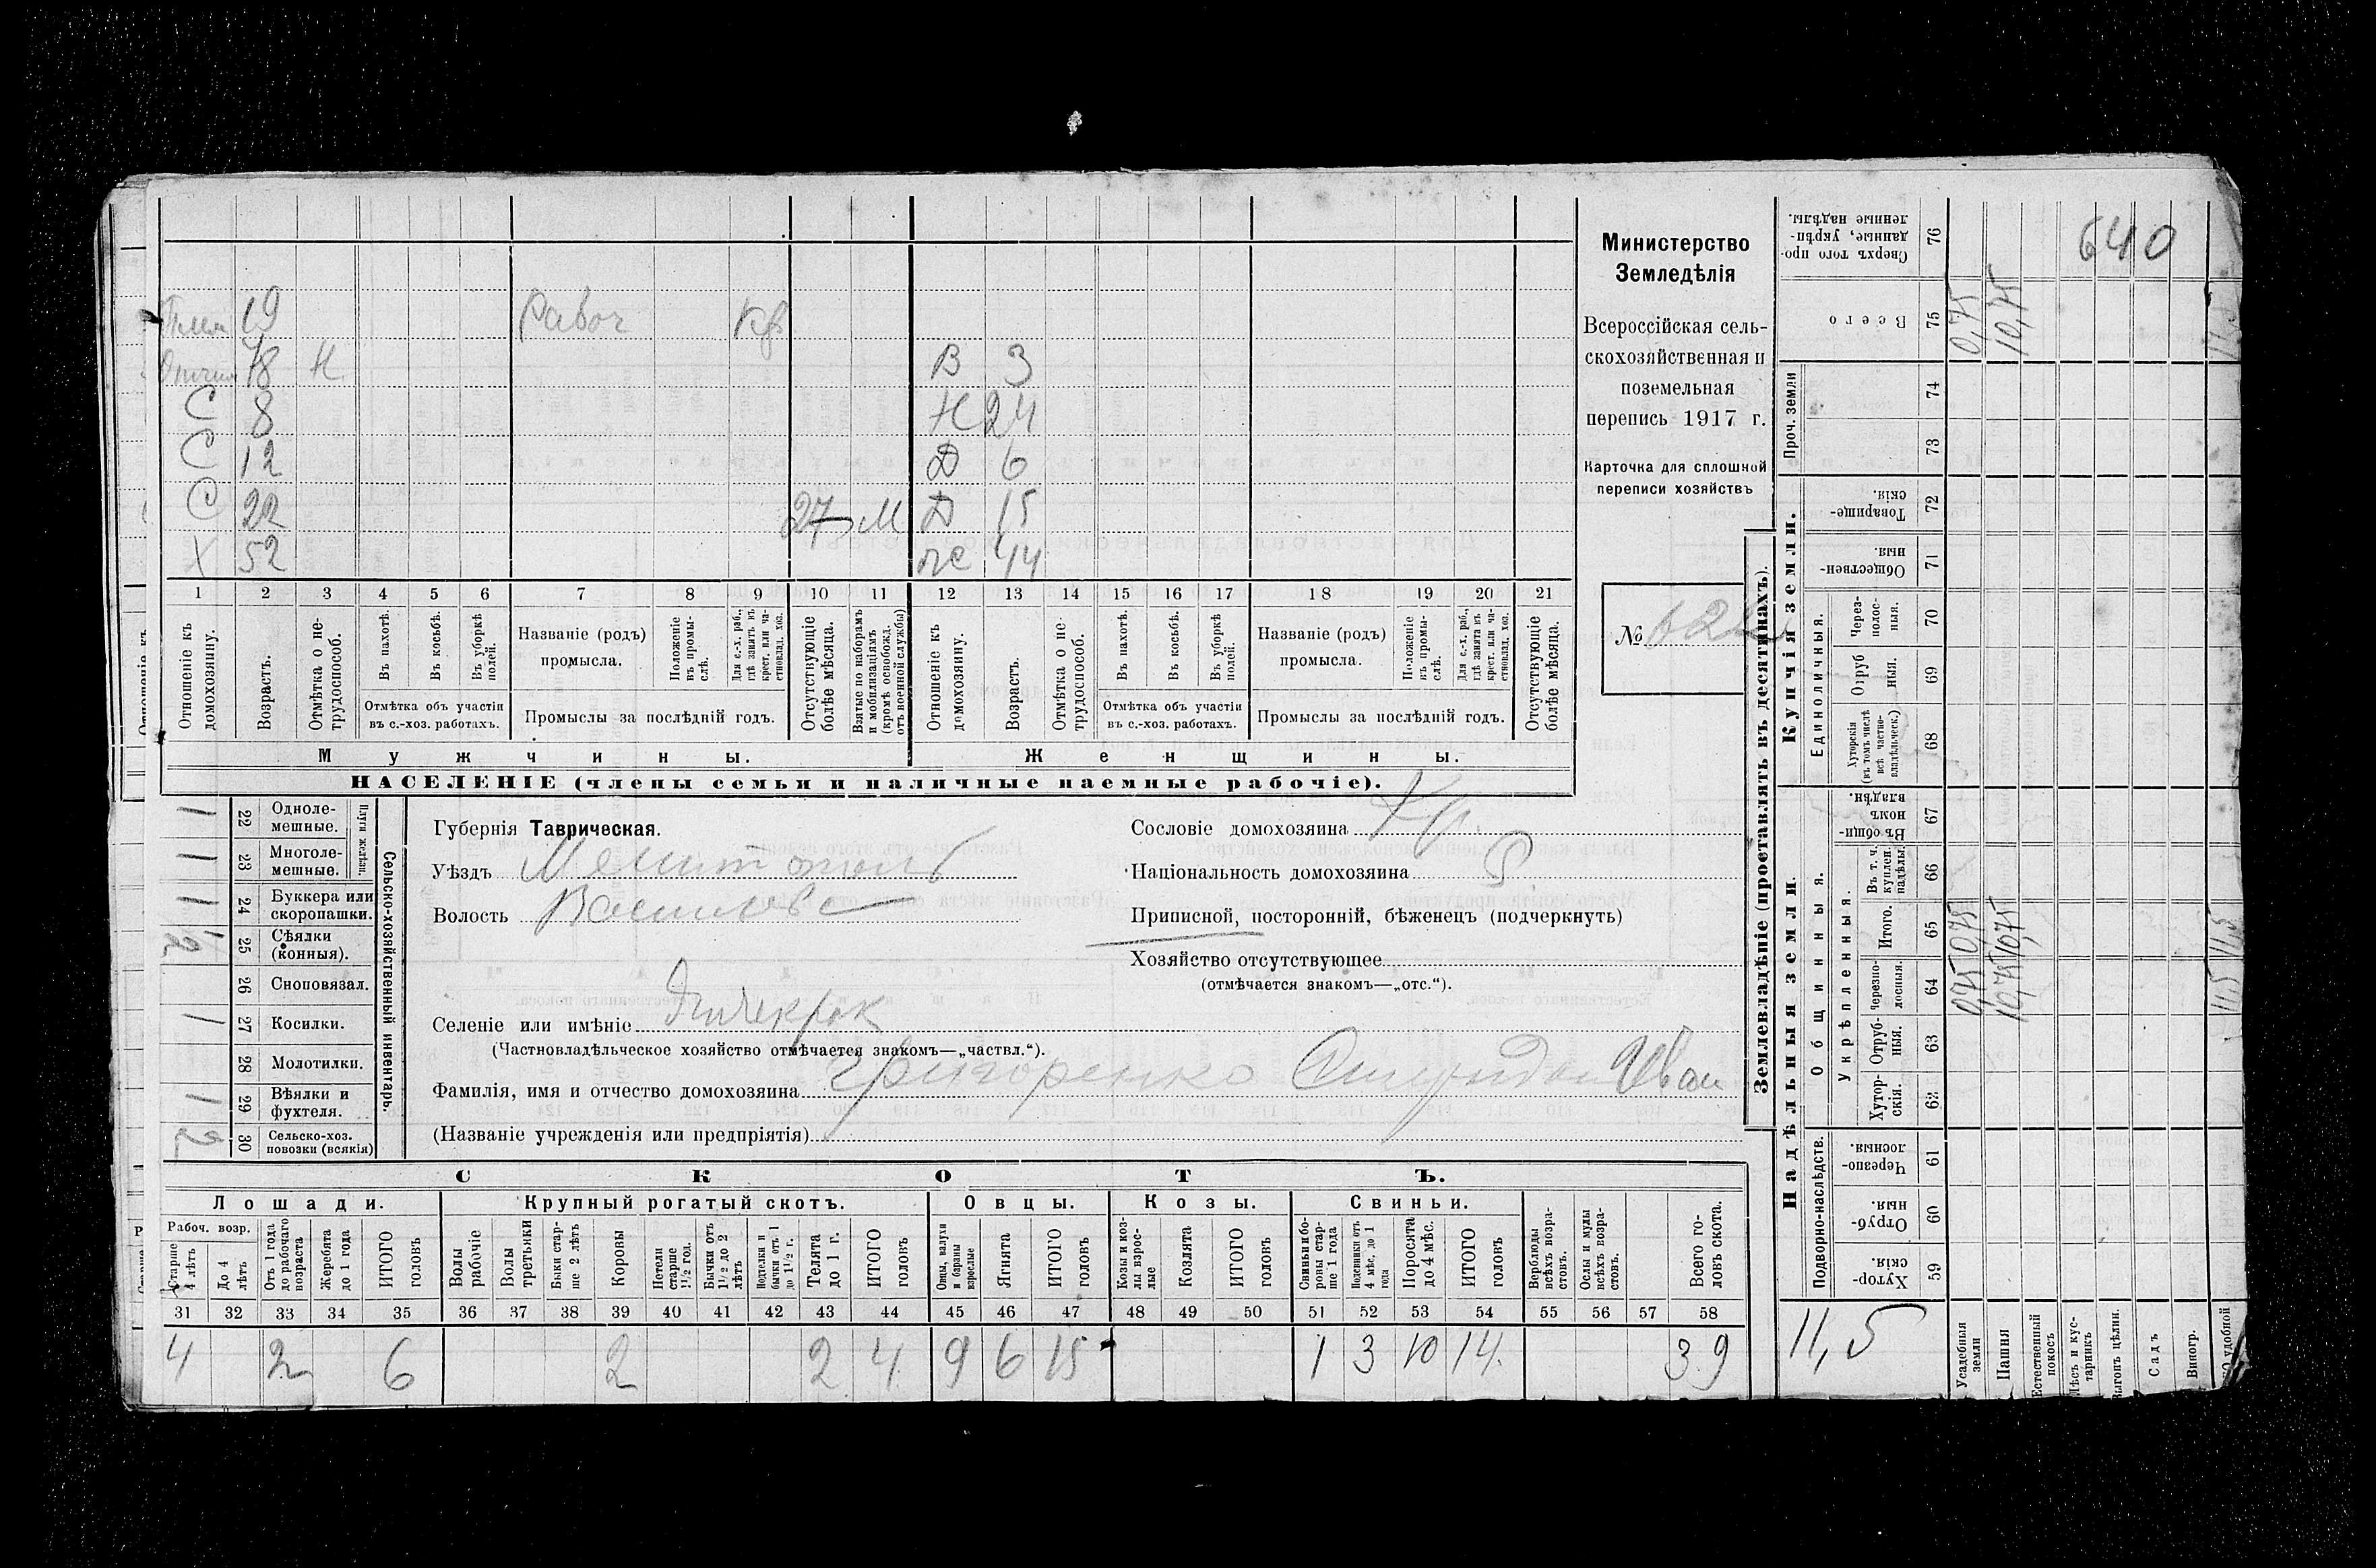 Тлмя 19 Рабоч Кр
Отчим 78 Н В 3
С 8 Н 24
С 12 Д 6
С 22 27 М Д 15
Х 52 же 44
1 2 3 4 5 6 7 8 9 10 11 12 13 14 15 16 17 18 19 20 21
Отношеніе къ домохозяину.
Возрастъ.
Отмѣтка о не-
трудоспособ.
Въ пахотѣ.
Въ косьбѣ.
Въ уборкѣ
полей.
Отмѣтка объ участіи
въ с.-хоз. работахъ.
Названіе (родъ)
промысла.
Положеніе
въ промы-
слѣ.
Для с.-х. раб.,
гдѣ занятъ въ
крест. или ча-
стновлад. хоз.
Промыслы за послѣдній годъ.
Отсутствующіе
болѣе мѣсяца.
Взятые по наборамъ
и мобилизаціямъ
(кромѣ освобожд.
отъ военной службы)
Отношеніе къ
домохозяину.
Возрастъ.
Отмѣтка о не-
трудоспособ.
Въ пахотѣ.
Въ косьбѣ.
Въ уборкѣ
полей.
Отмѣтка объ участіи
въ с.-хоз. работахъ.
Названіе (родъ)
промысла.
Положеніе
въ промы-
слѣ.
Для с.-х. раб.,
гдѣ занята въ
крест. или ча-
стновлад. хоз.
Промыслы за послѣдній годъ.
Отсутствующіе
болѣе мѣсяца.
Мужчины. Женщины.
НАСЕЛЕНІЕ (члены семьи и наличные наемные рабочіе).
Министерство
Земледѣлія
Всероссійская сель-
скохозяйственная и
поземельная
перепись 1917 г.
Карточка для сплошной
переписи хозяйствъ
№
1 22 Одноле-
мешные.
1 23 Многоле-
мешные.
Плуги желѣзн.
1 24 Буккера или
скоропашки.
1/2 25 Сѣялки
(конныя).
26 Сноповязал.
1 27 Косилки.
28 Молотилки.
1 29 Вѣялки и
фухтеля.
2 30 Сельско-хоз.
повозки (всякія)
Сельско-хозяйственный инвентарь.
Губернія Таврическая.
Уѣздъ Мелитополь
Волость Василевс
Селеніе или имѣніе Янчекрак
(Частновладѣльческое хозяйство отмѣчается знакомъ—„частвл.“).
Фамилія, имя и отчество домохозяина Григоренко Спиридон Иван
(Названіе учрежденія или предпріятія)
Сословіе домохозяина Кр.
Національность домохозяина
Приписной, посторонній, бѣженецъ (подчеркнуть)
Хозяйство отсутствующее
(отмѣчается знакомъ—„отс.“).
СКОТЪ.
Лошади. Крупный рогатый скотъ. Овцы. Козы. Свиньи.
Рабоч. возр.
Старше
4 лѣтъ
До 4
лѣтъ
Отъ 1 года
до рабочаго
возраста
Жеребята
до 1 года
ИТОГО
головъ
Волы
рабочіе
Волы
третьяки
Быки стар-
ше 2 лѣтъ
Коровы
Нетели
старше
1½ год.
Бычки отъ
1½ до 2
лѣтъ
Подтелки и
бычки отъ 1
до 1½ г.
Телята
до 1 г.
ИТОГО
головъ
Овцы, валухи
и бараны
взрослые
Ягнята
ИТОГО
головъ
Козы и коз-
лы взрос-
лые
Козлята
ИТОГО
головъ
Свиньи и бо-
ровы стар-
ше 1 года
Подсвинки отъ
4 мѣс. до 1
года
Поросята
до 4 мѣс.
ИТОГО
головъ
Верблюды
всѣхъ возра-
стовъ.
Ослы и мулы
всѣхъ возра-
стовъ.
Всего го-
ловъ скота.
31 32 33 34 35 36 37 38 39 40 41 42 43 44 45 46 47 48 49 50 51 52 53 54 55 56 57 58
4 2 6 2 2 4 9 6 15 1 3 10 14 39
Землевладѣніе (проставлять въ десятинахъ).
Купчія земли.
Надѣльныя земли
640
Сверхъ того про-
данные, укрѣп-
ленные надѣлы. 76
Всего 75 0,75 10,75
Проч. земли 74
73
Товарище-
скія. 72
Обществен-
ныя. 71
Единоличныя.
Через-
полос-
ныя. 70
Отруб
ныя. 69
Хуторскія
(въ томъ числѣ
всѣ частно-
владѣльческ.) 68
Общинныя.
Въ общи-
номъ
владѣн. 67
Укрѣпленныя.
Въ т. ч.
куплен.
надѣлы. 66
Итого. 65 0,75 10,75 11,5
Черезпо-
лосныя. 64 0,75 10,75 11,5
Отруб-
ныя. 63
Хутор-
скія. 62
Подворно-наслѣдств.
Черезпо-
лосныя. 61
Отруб-
ныя. 60
Хутор-
скія. 59
11,5
Усадебныя
земли
Пашня
Естественный
покосъ
Лѣсъ и кус-
тарникъ
Выгонъ цѣлин.
Садъ
Виногр.
удобной